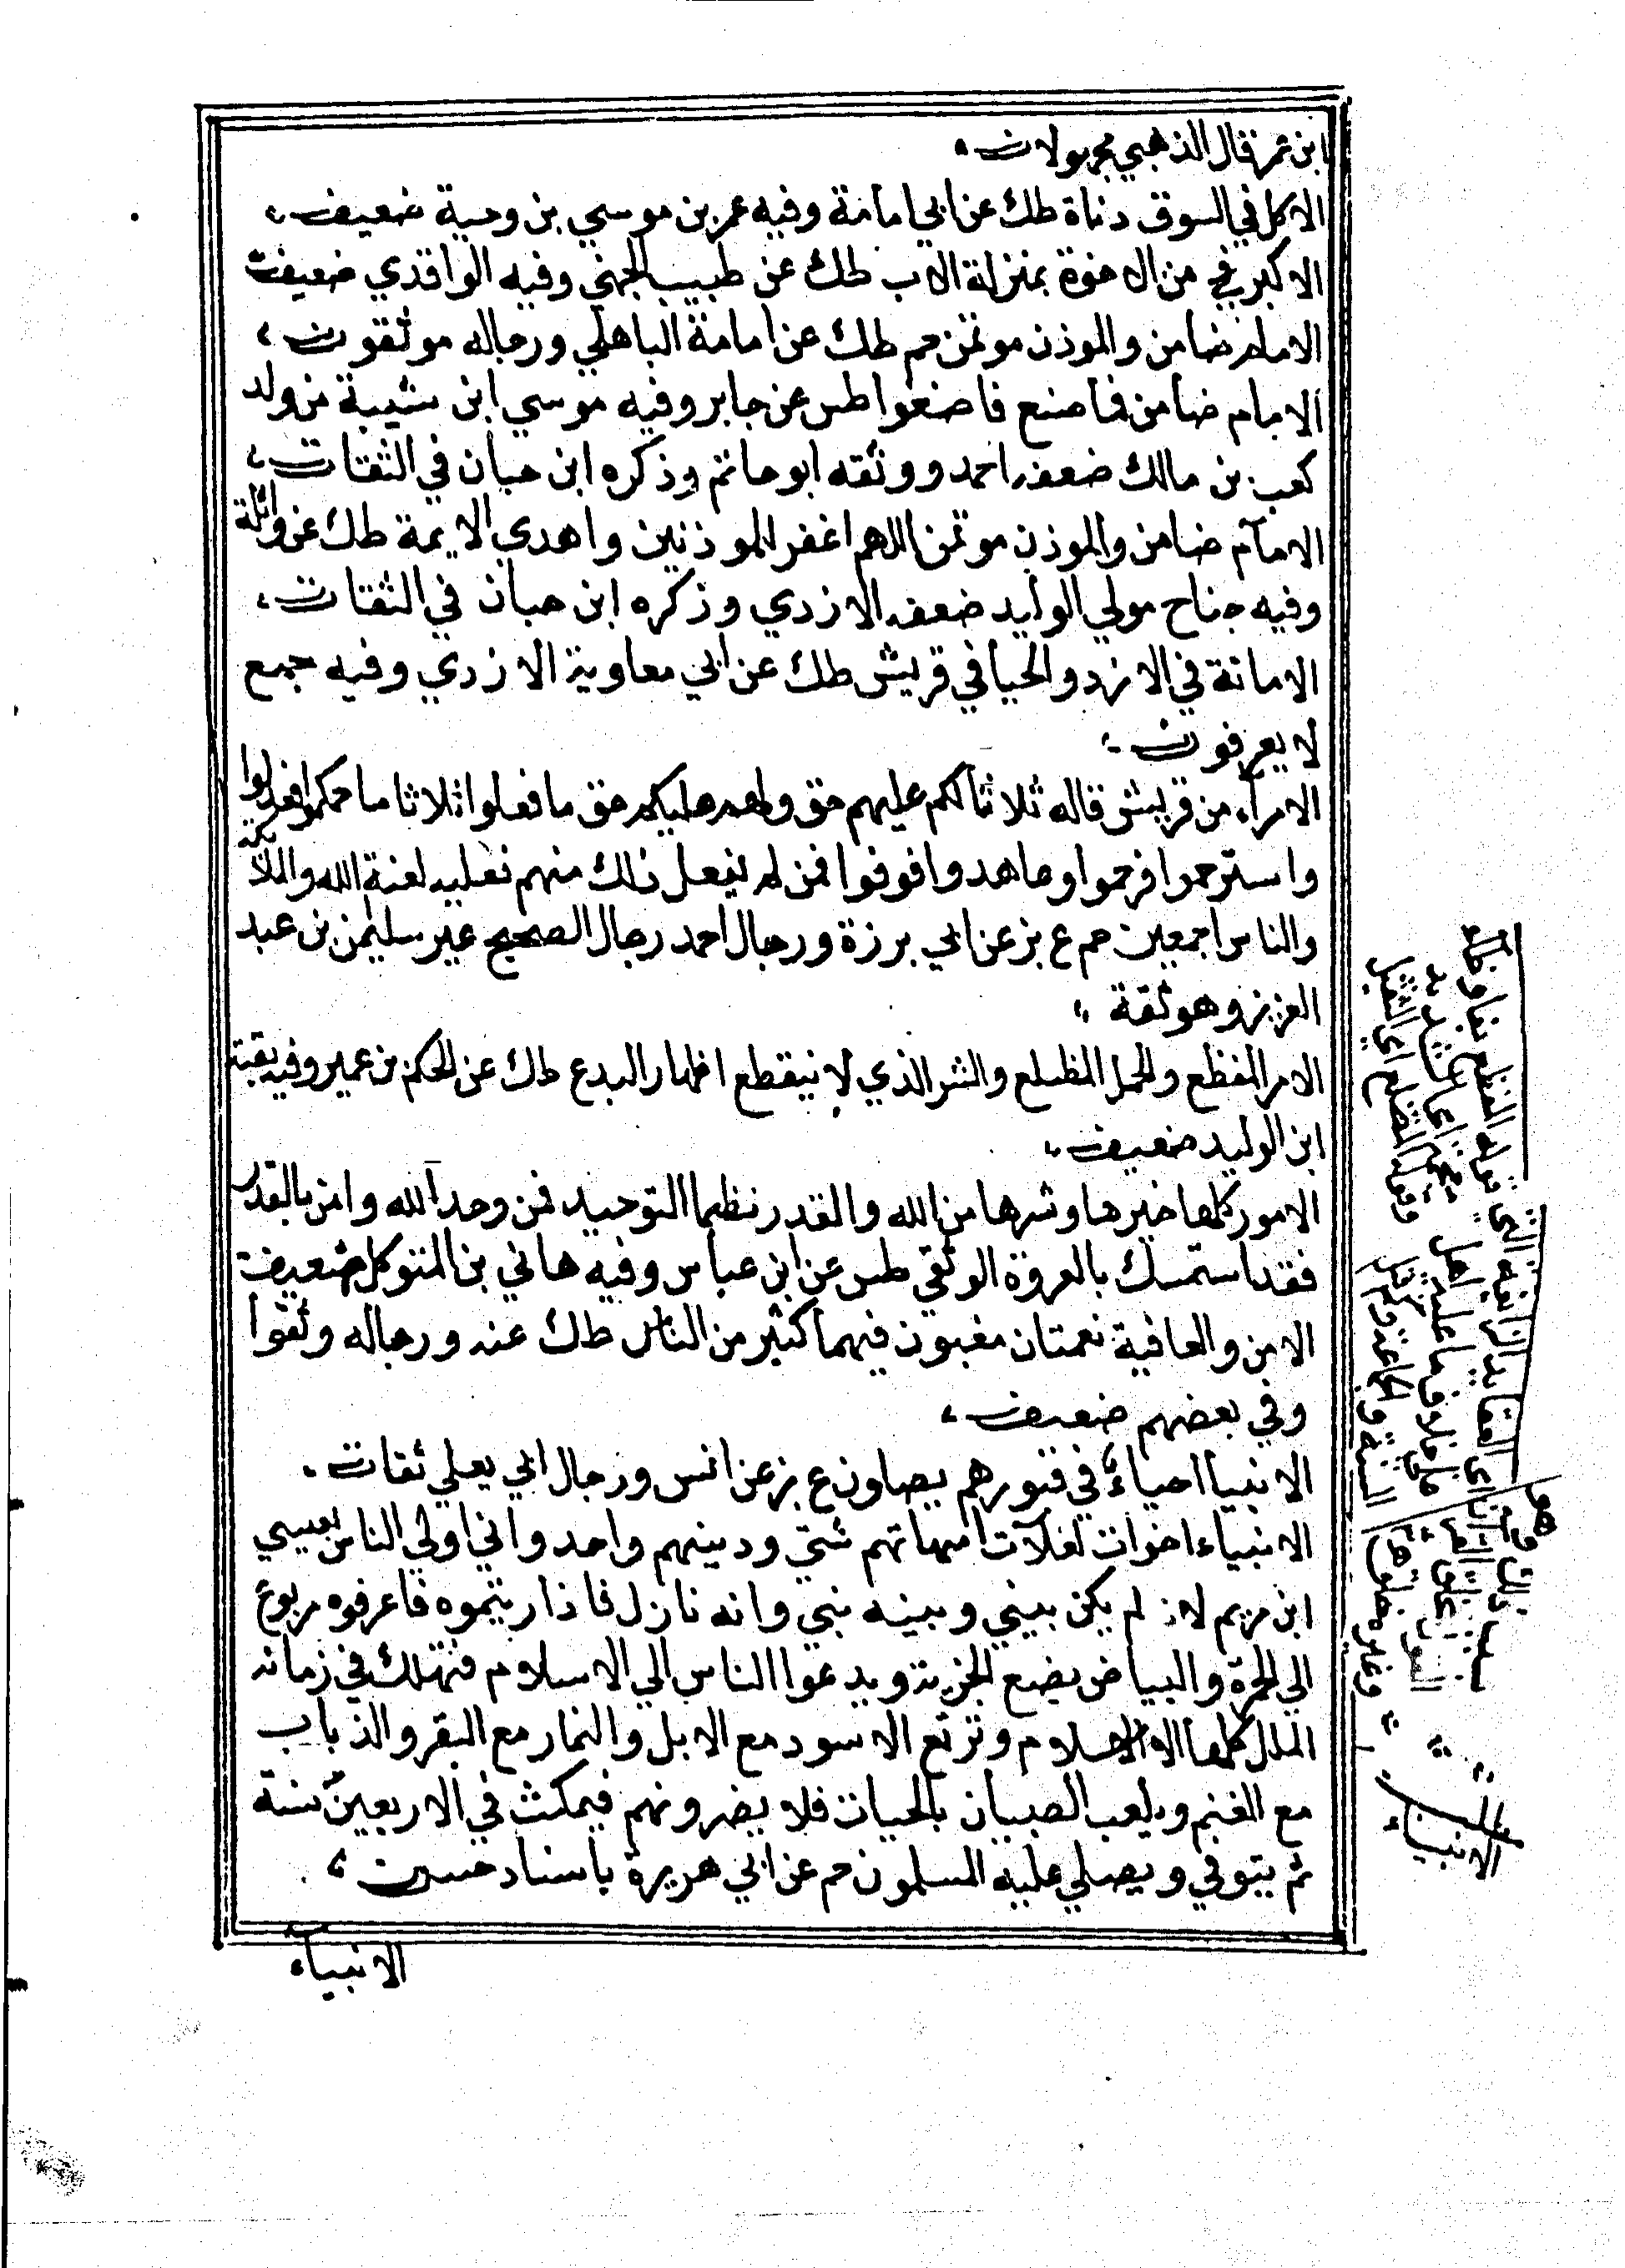 ابن عمر قال الذهبي مجهولان
الاكل في السوق دناة طك عن ابي امامة وفيه عمر بن موسي بن وجية ضعيف
الاكبر في من الاخوة بمنزلة الاب طك عن طبيب الجهني وفيه الواقدي ضعيف
الامام ضامن والموذن موتمن حم طك عن امامة الباهلي ورجاله موثقون
الامام ضامن فما صنع فاصنعوا طس عن جابر وفيه موسي ابن شيبة من ولد
كعب بن مالك ضعفه احمد ووثقه ابو حاتم وذكره ابن حبان في الثقات
الامام ضامن والموذن موتمن اللهم اغفر للموذنين واهدي الايمة طك عن واثلة
وفيه جناح مولي الوليد ضعفه الازدي وذكره ابن حبان في الثقات
الامانة في الازد والحيا في قريش طك عن ابي معاوية الازدي وفيه جمع
لا يعرفون
الامرآء من قريش قاله ثلاثا لكم عليهم حق ولهم عليكم حق ما فعلوا ثلاثا ما حكموا فعدلوا
واسترحموا فرحموا وعاهدوا فوفوا فمن لم يفعل ذلك منهم فعليه لعنة الله والملائكة
والناس اجمعين حم ع بز عن ابي برزة ورجال احمد رجال الصحيح غير سليمن بن عبد
العزيز وهو ثقة
الامر المفظع والحمل المظلع والشر الذي لا ينقطع اظهار البدع طك عن الحكم بن عمير وفيه بقية
ابن الوليد ضعيف
الامور كلها خيرها وشرها من الله والقدر نظما التوحيد فمن وحد الله وامن بالقدر
فقد استمسك بالعروة الوثقي طس عن ابن عباس وفيه هاني بن المتوكل ضعيف
الامن والعافية نعمتان مغبون فيهما كثير من الناس طك عنه ورجاله وثقوا
وفي بعضهم ضعيف
الانبيا احياء في قبورهم يصلون ع بز عن انس ورجال ابي يعلي ثقات
الانبياء اخوات لعلات امهاتهم شتي ودينهم واحد واني اولي الناس بعيسي
ابن مريم لانه لم يكن بيني وبينه نبي وانه نازل فاذا رايتموه فاعرفوه مربوع
الي الحمرة والبياض يضع الجزية ويدعوا الناس الي الاسلام فتهلك في زمانه
الملل كلها الا الاسلام وترتع الاسود مع الابل والنمار مع البقر والذباب
مع الغنم ويلعب الصبيان بالحيات فلا يضرونهم فيمكث في الاربعين سنة
ثم يتوفي ويصلي عليه المسلمون حم عن ابي هريرة باسناد حسن
الانبياء